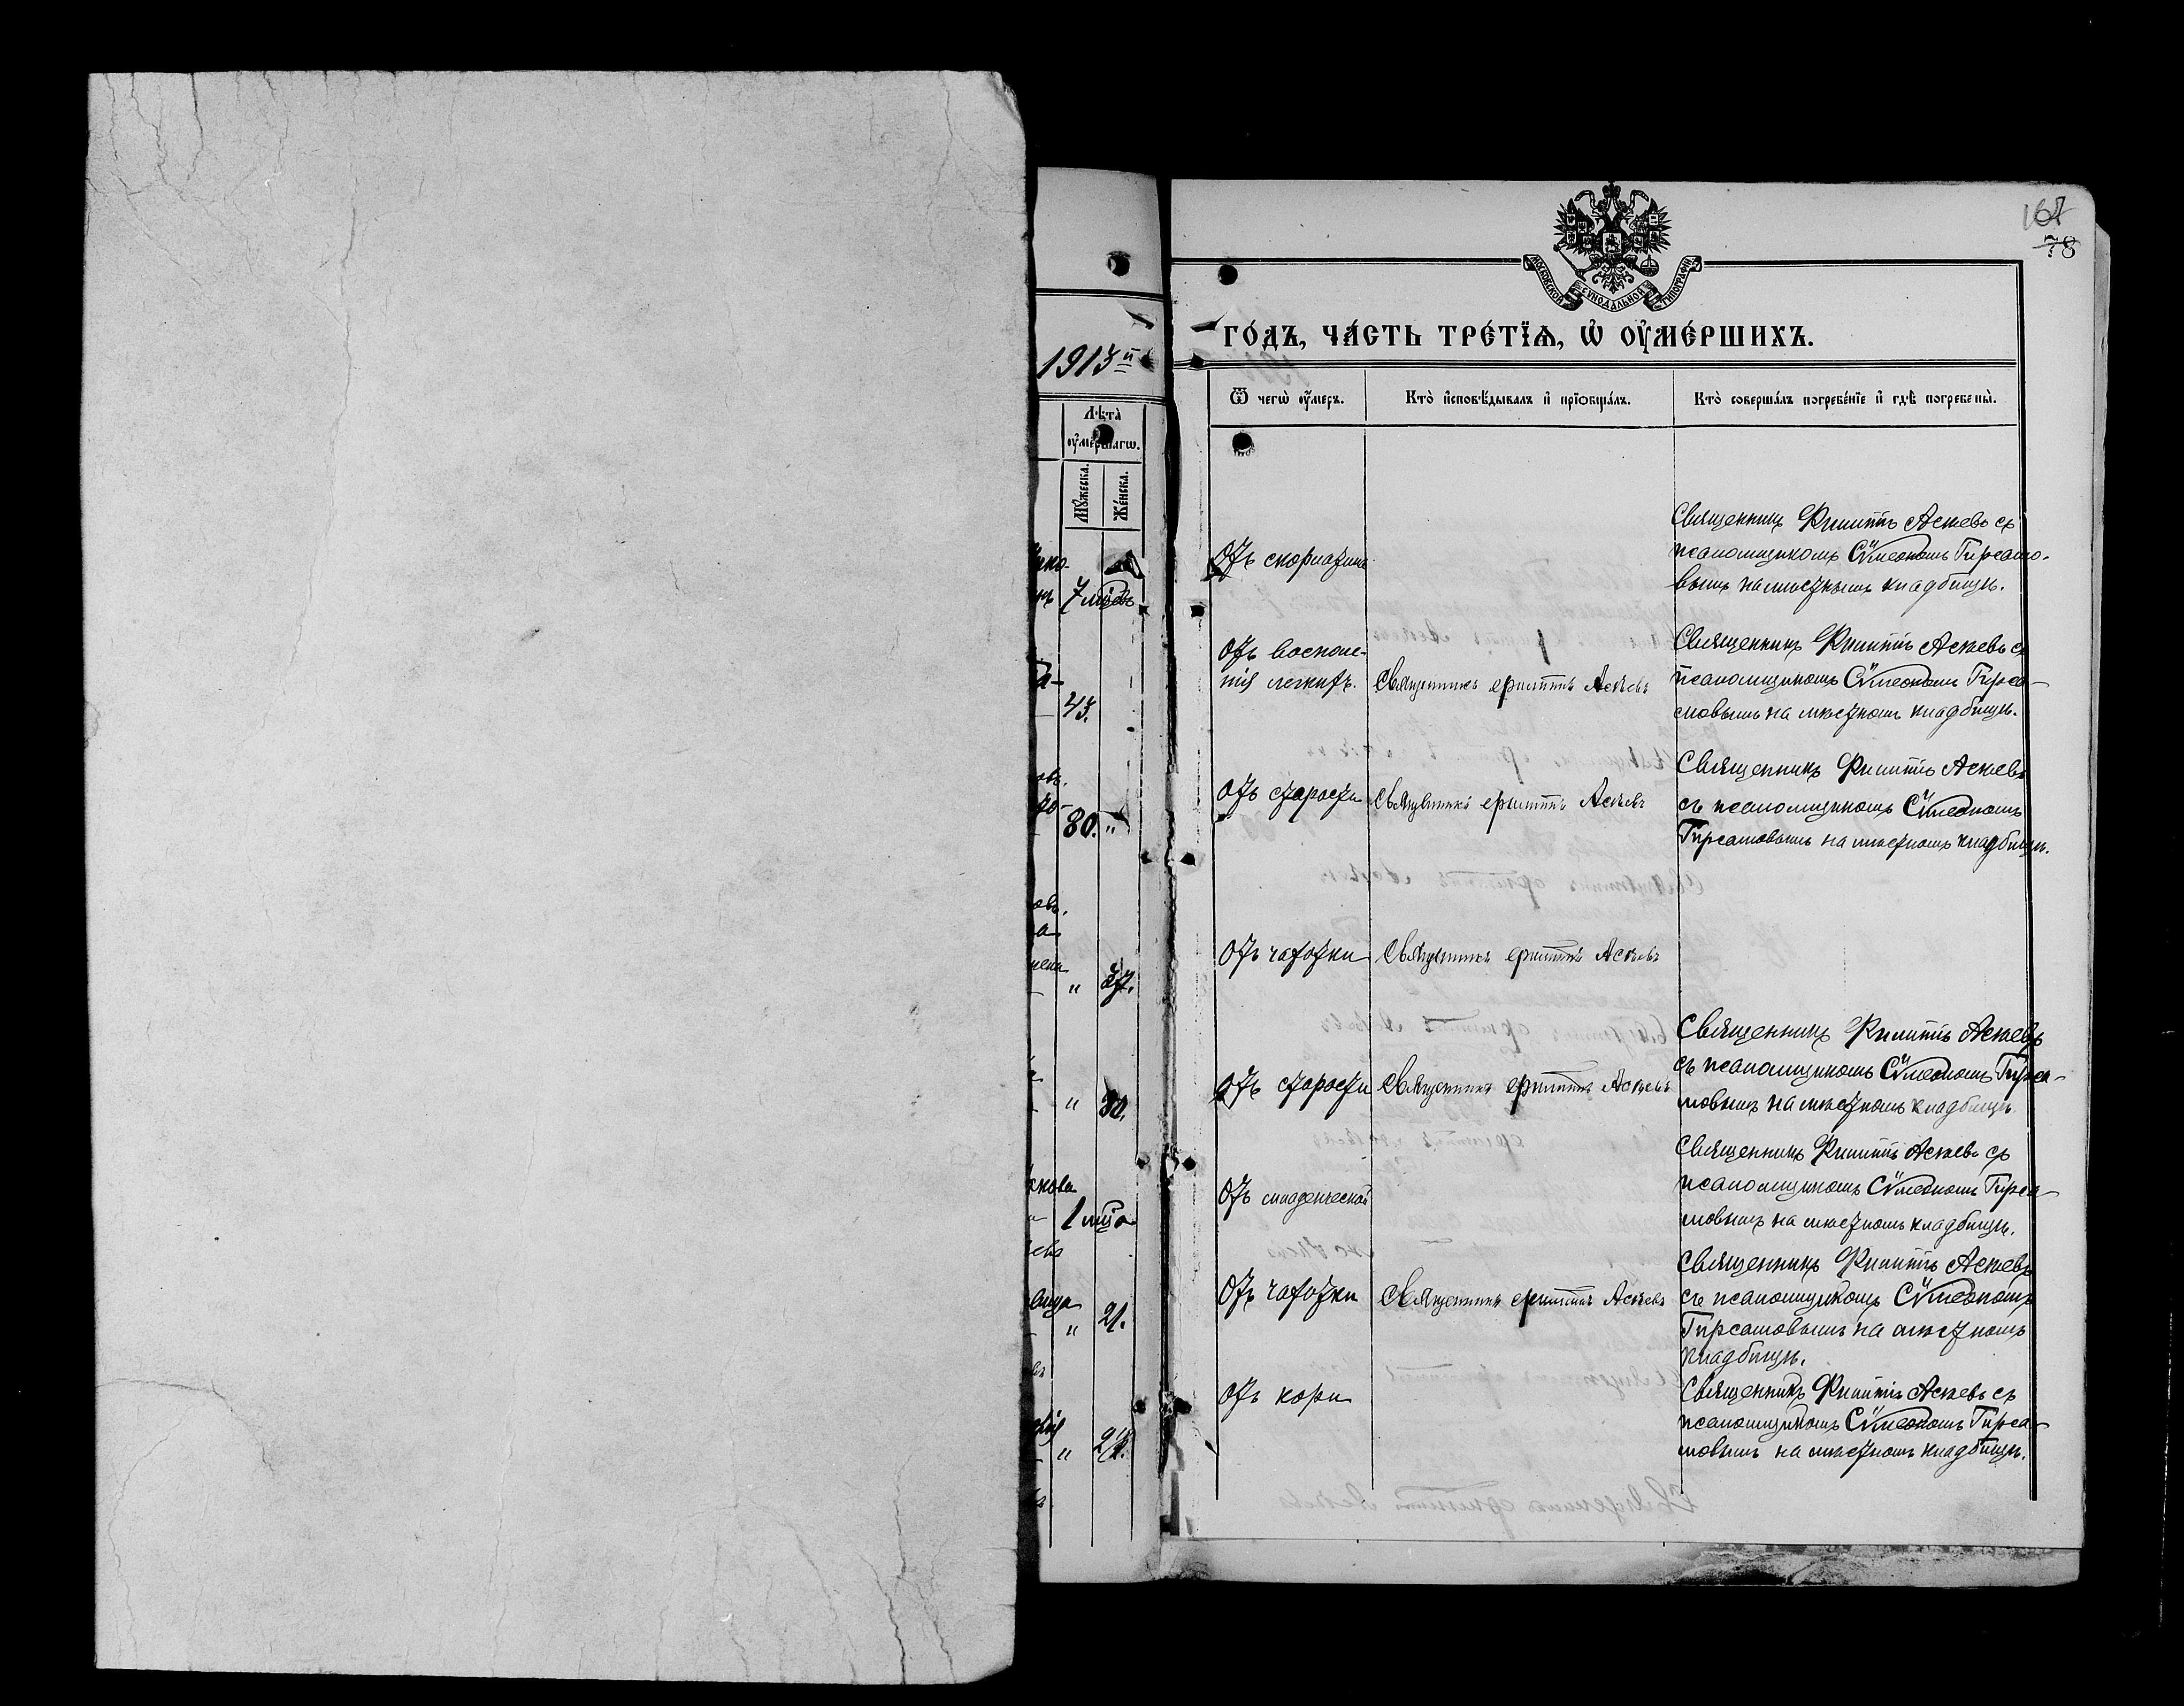 161
78
МОСКОВСКОЙ СѴНОДАЛЬНОЙ ТИПОГРАФІИ
1913й
го́дъ, ча́сть тре́тїѧ, ѽ ᲂу҆ме́ршихъ.
Лѣ́та̀
ᲂу҆ме́ршагѡ.
Мꙋ́жеска.
Же́нска.
Ѿ чегѡ̀ ᲂу҆́меръ.
Кто̀ и҆сповѣ́дывалъ и҆ прїѡбща́лъ.
Кто̀ соверша́лъ погребе́нїе и҆ гдѣ̀ погребены̀.
7 мѣсцевъ
Отъ скорлатины
Священникъ Филиппъ Аскевъ съ
псаломщикомъ Сѵмеономъ Тирсамо-
вымъ на мѣстномъ кладбищѣ.
43.
Отъ воспале-
нія легкихъ.
Священникъ Филиппъ Аскевъ
Священникъ Филиппъ Аскевъ съ
псаломщикомъ Сѵмеономъ Тирса-
мовымъ на мѣстномъ кладбищѣ.
80. "
Отъ старости
Священникъ Филиппъ Аскевъ
Священникъ Филиппъ Аскевъ
съ псаломщикомъ Сѵмеономъ
Тирсамовымъ на мѣстномъ кладбищѣ.
" 37.
Отъ чахотки
Священникъ Филиппъ Аскевъ
" 80.
Отъ старости
Священникъ Филиппъ Аскевъ
Священникъ Филиппъ Аскевъ
съ псаломщикомъ Сѵмеономъ Тирса-
мовымъ на мѣстномъ кладбищѣ.
1 мѣсца
Отъ младенческой
Священникъ Филиппъ Аскевъ съ
псаломщикомъ Сѵмеономъ Тирса-
мовымъ на мѣстномъ кладбищѣ.
" 21.
Отъ чахотки
Священникъ Филиппъ Аскевъ
Священникъ Филиппъ Аскевъ
съ псаломщикомъ Сѵмеономъ
Тирсамовымъ на мѣстномъ
кладбищѣ.
"
Отъ кори
Священникъ Филиппъ Аскевъ съ
псаломщикомъ Сѵмеономъ Тирса-
мовымъ на мѣстномъ кладбищѣ.